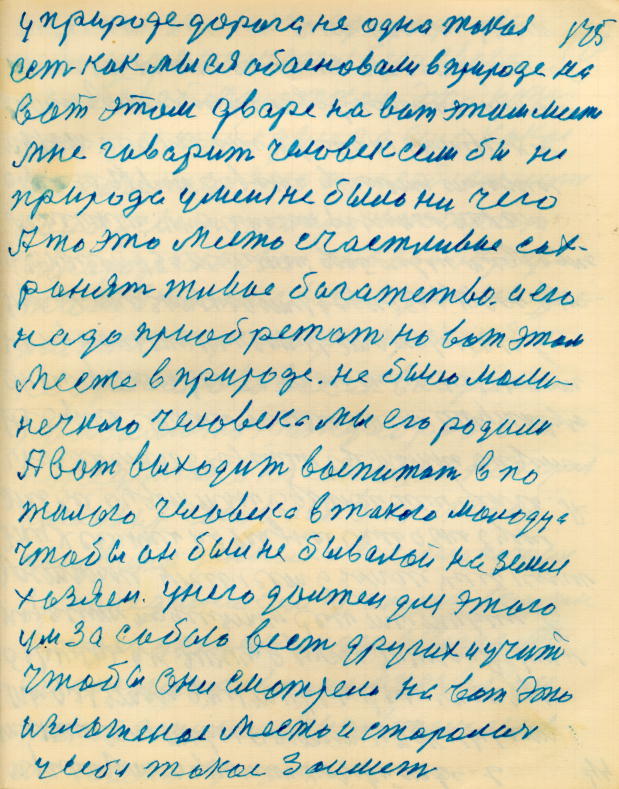 у природе дорога не одна такая 175
сет как мы ся обасновали в природе на
вот этом дваре на вот этом месте
мне гаварит человек если бы не
природа у меня не было ни чего
А то это место счастливие сах-
ранят живое багатство. а его
надо приобретат на вот этом
месте в природе. не было мали-
нечкого человека мы его родили
А вот выходит воспитат в по
жилого человека в такого молодца
чтобы он был не бывалой на земли
хозяен. у него должен для этого
ум За собою вест других и учит
чтобы они смотрели на вот это
изложеное место и старалис
у себя такое Заимет